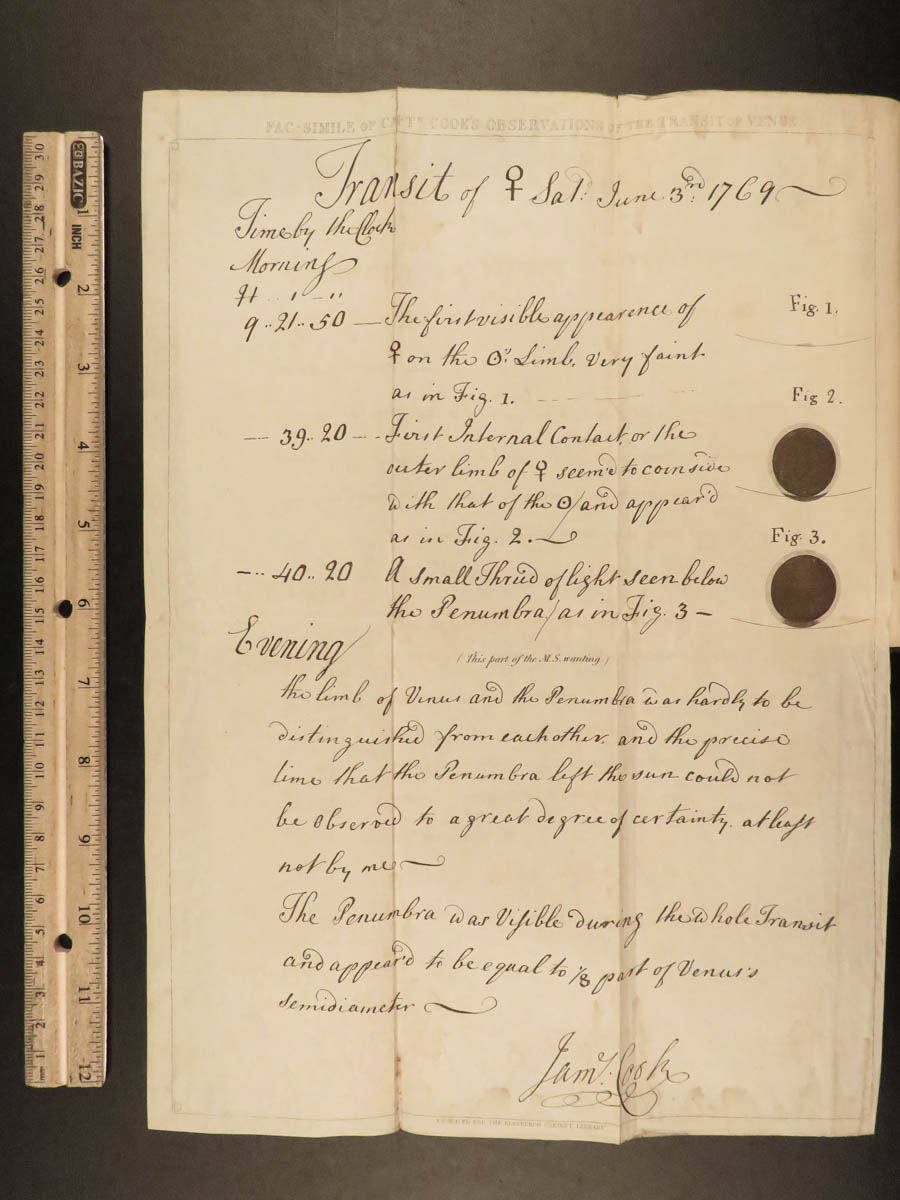 FAC-SIMILE OF CAPTN. COOK'S OBSERVATIONS OF THE TRANSIT OF VENUS
Transit of ♀ Sat: June 3rd: 1769
Time by the Clock
Morning
H ' "
9 .. 21 .. 50 — The first visible appearence of
♀ on the ☉'s Limb, very faint
as in Fig. 1.
Fig. 1.
— 39 .. 20 — First Internal Contact, or the
outer limb of ♀ seem'd to coinside
with that of the ☉ / and appear'd
as in Fig. 2. —
Fig 2.
— 40 .. 20 A small Thrid of light seen below
the Penumbra / as in Fig. 3 —
Fig. 3.
Evening
(This part of the M.S. wanting.)
the limb of Venus and the Penumbra was hardly to be
distinguished from each other. and the precise
time that the Penumbra left the sun could not
be observed to a great degree of certainty. at least
not by me
The Penumbra was Visible during the whole Transit
and appear'd to be equal to 1/8 part of Venus's
semidiameter
Jams. Cook
ENGRAVED FOR THE EDINBURGH CABINET LIBRARY
BAZIC
INCH
1
2
3
4
5
6
7
8
9
10
11
12
30
29
28
27
26
25
24
23
22
21
20
19
18
17
16
15
14
13
12
11
10
9
8
7
6
5
4
3
2
1